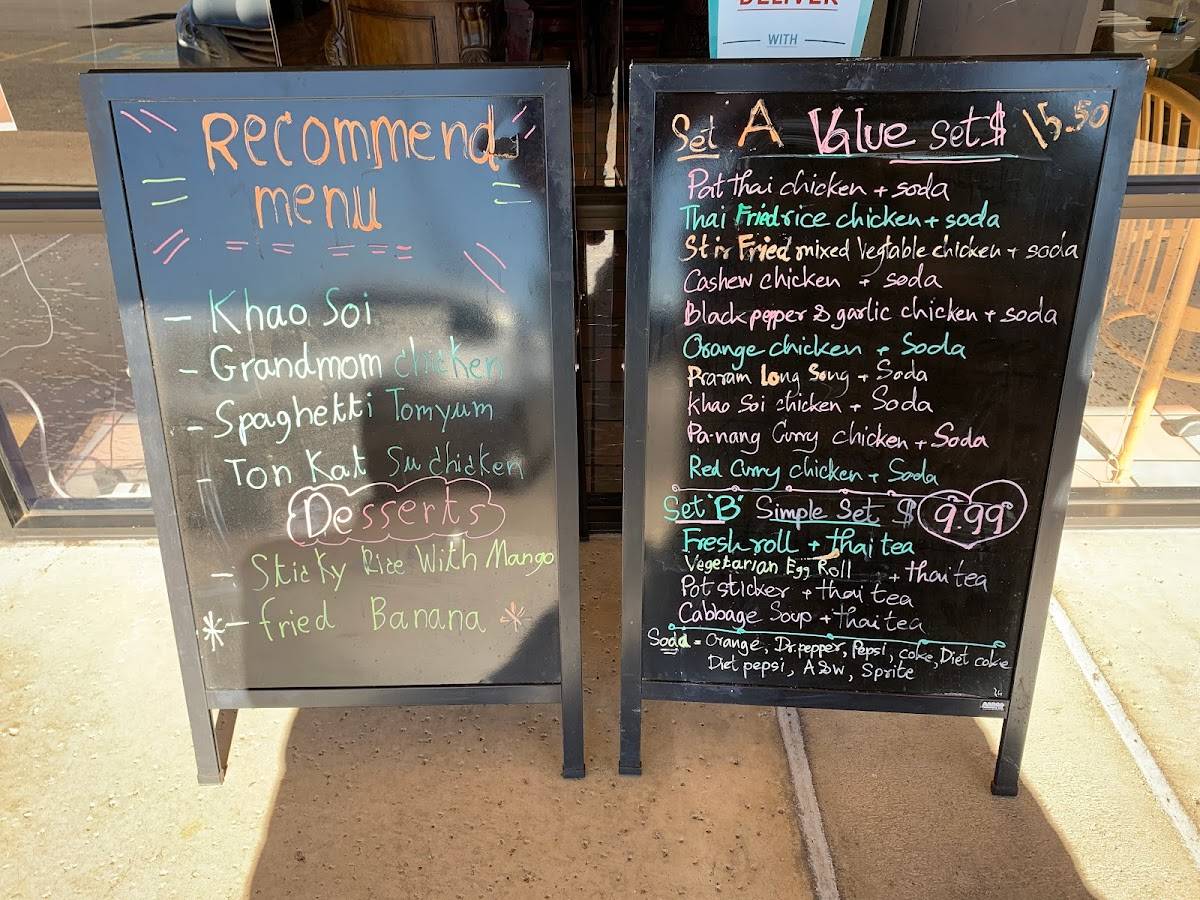 DELIVER
WITH
Recommend
menu
- Khao Soi
- Grandmom chicken
- Spaghetti Tomyum
- Ton Kat Su chicken
Desserts
- Sticky Rice With Mango
- fried Banana
Set A Value set $ 15.50
Pat thai chicken + soda
Thai Fried rice chicken + soda
Stir Fried mixed Vegtable chicken + soda
Cashew chicken + soda
Black pepper & garlic chicken + soda
Orange chicken + Soda
Praram Long Song + Soda
Khao Soi chicken + Soda
Pa-nang Curry chicken + Soda
Red Curry chicken + Soda
Set 'B' Simple Set $ 9.99
Fresh roll + thai tea
Vegetarian Egg Roll + thai tea
Pot sticker + thai tea
Cabbage Soup + thai tea
Soda = Orange, Dr.pepper, Pepsi, coke, Diet coke
Diet pepsi, A&W, Sprite